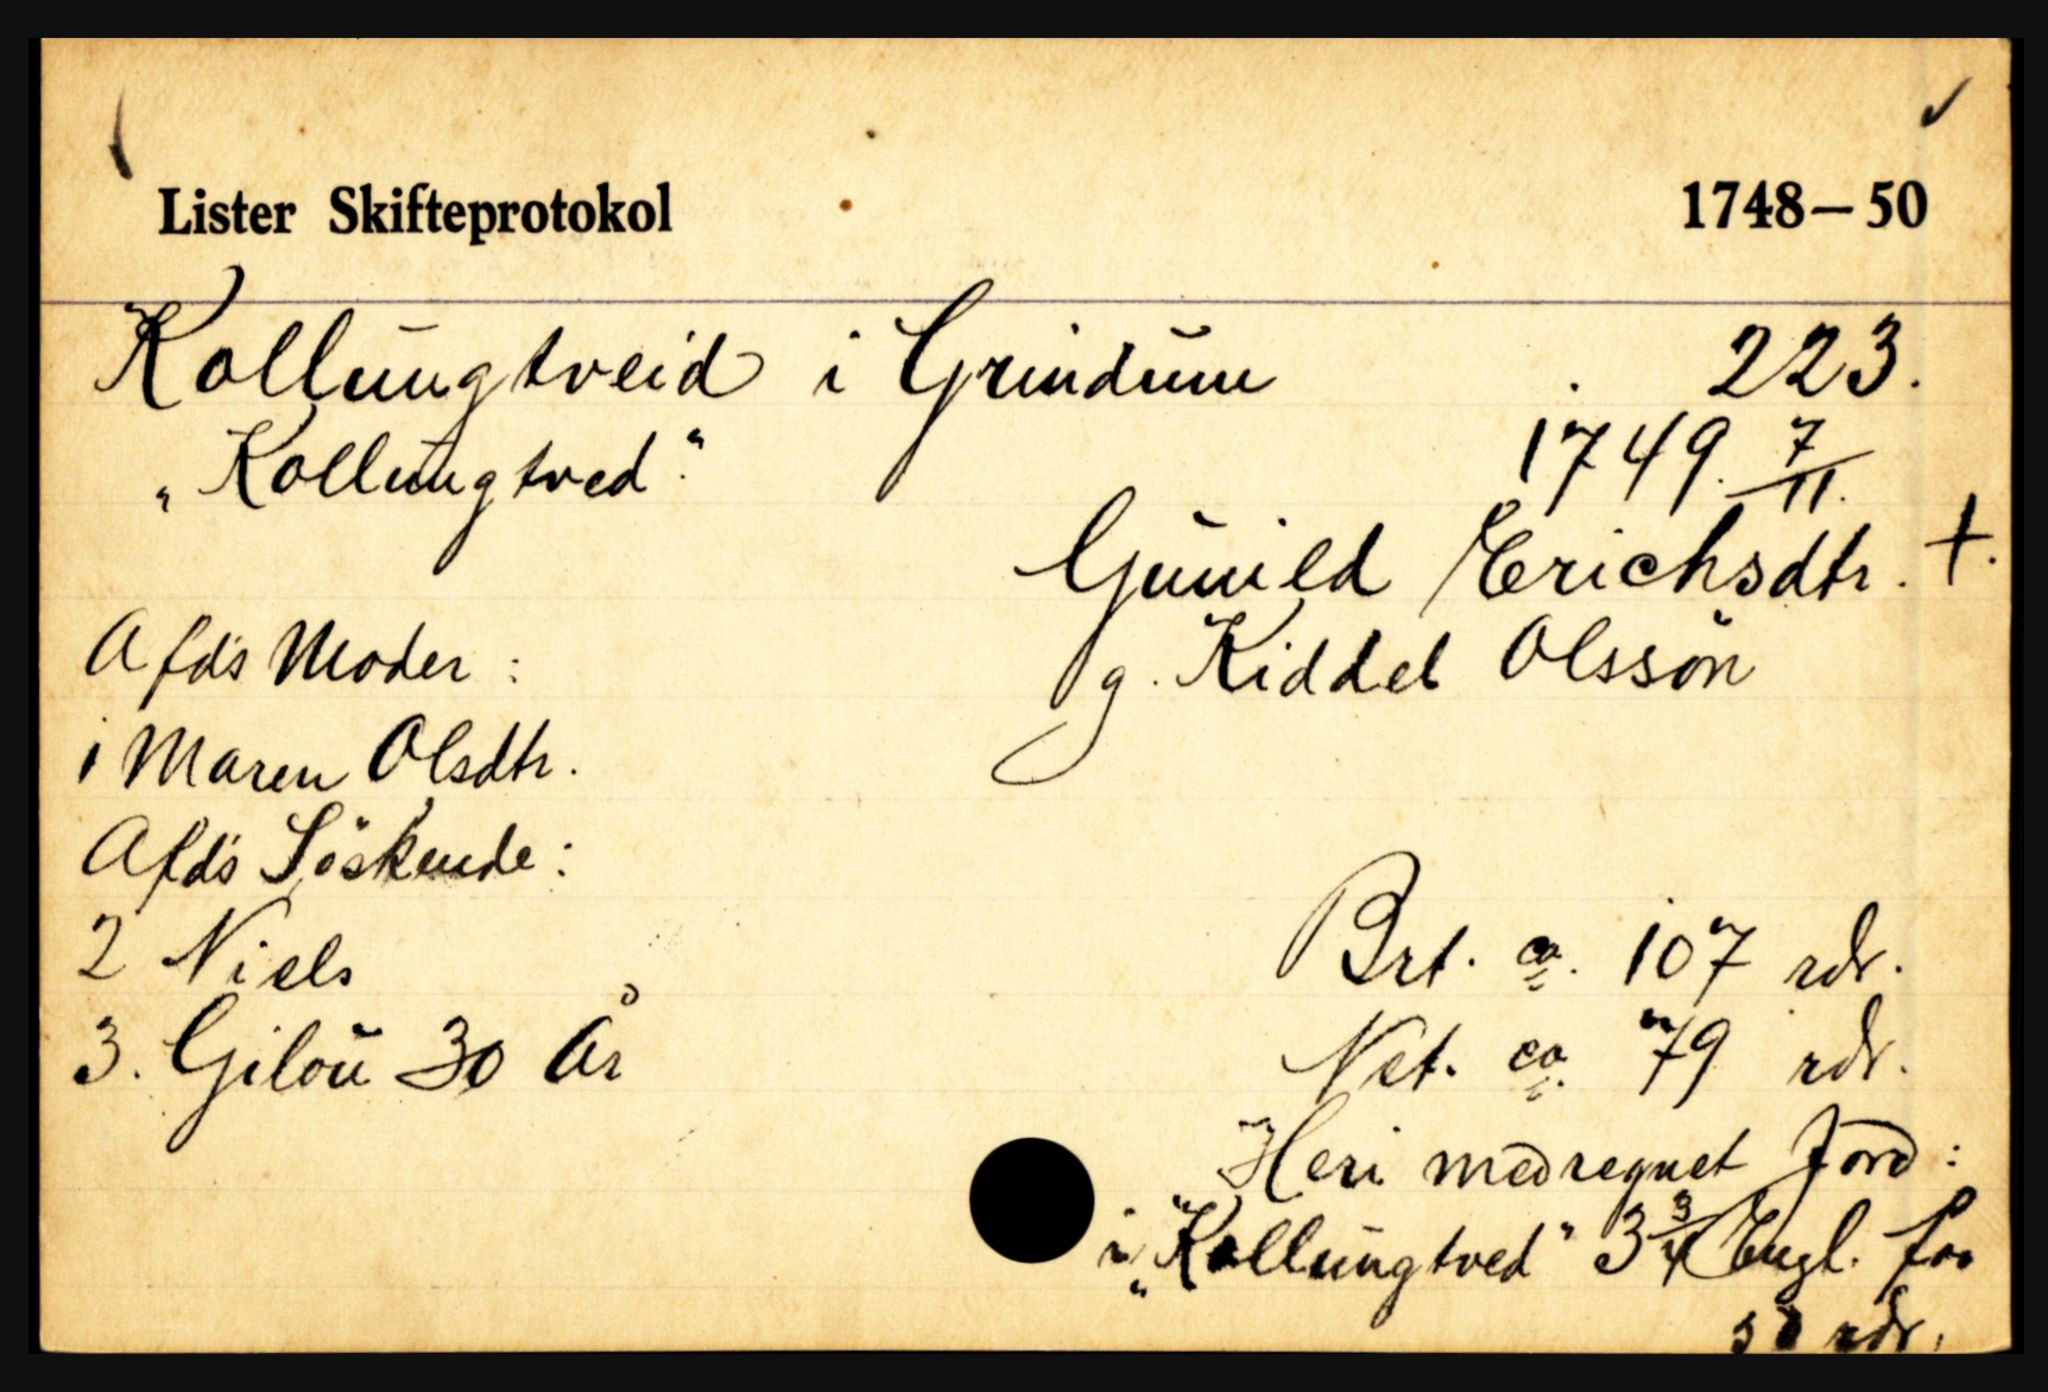 Lister Skifteprotokol 1748–50
Kollungtveid i Grindum 223.
„Kollungtved". 1749. 7/11.
Gunild Erichsdtr. †.
Afd's Moder: g. Kiddel Olssøn
1 Maren Olsdtr.
Afd's Söskende:
2 Niels Brt. ca. 107 rdr.
3. Gilou 30 År Net. ca. 79 rdr.
Heri medregnet Jord:
i „Kollungtved" 3 3/4 Engl. for
rdr.